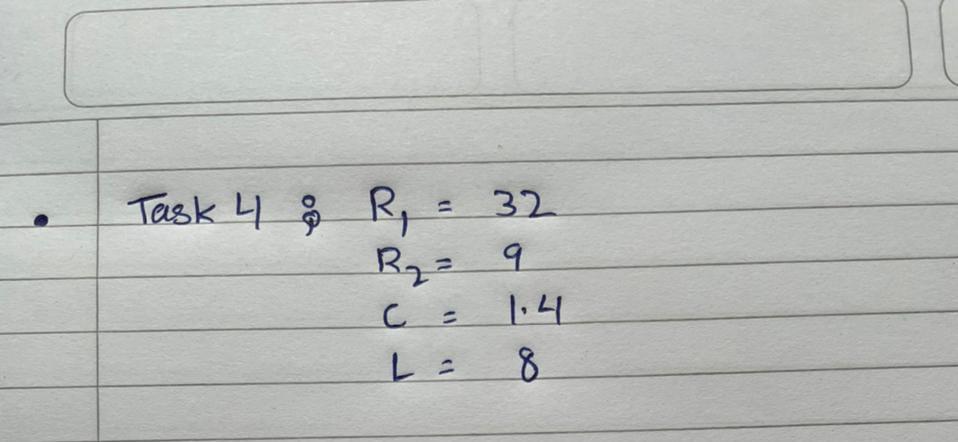 • Task 4 : R₁ = 32
R₂ = 9
C = 1.4
L = 8